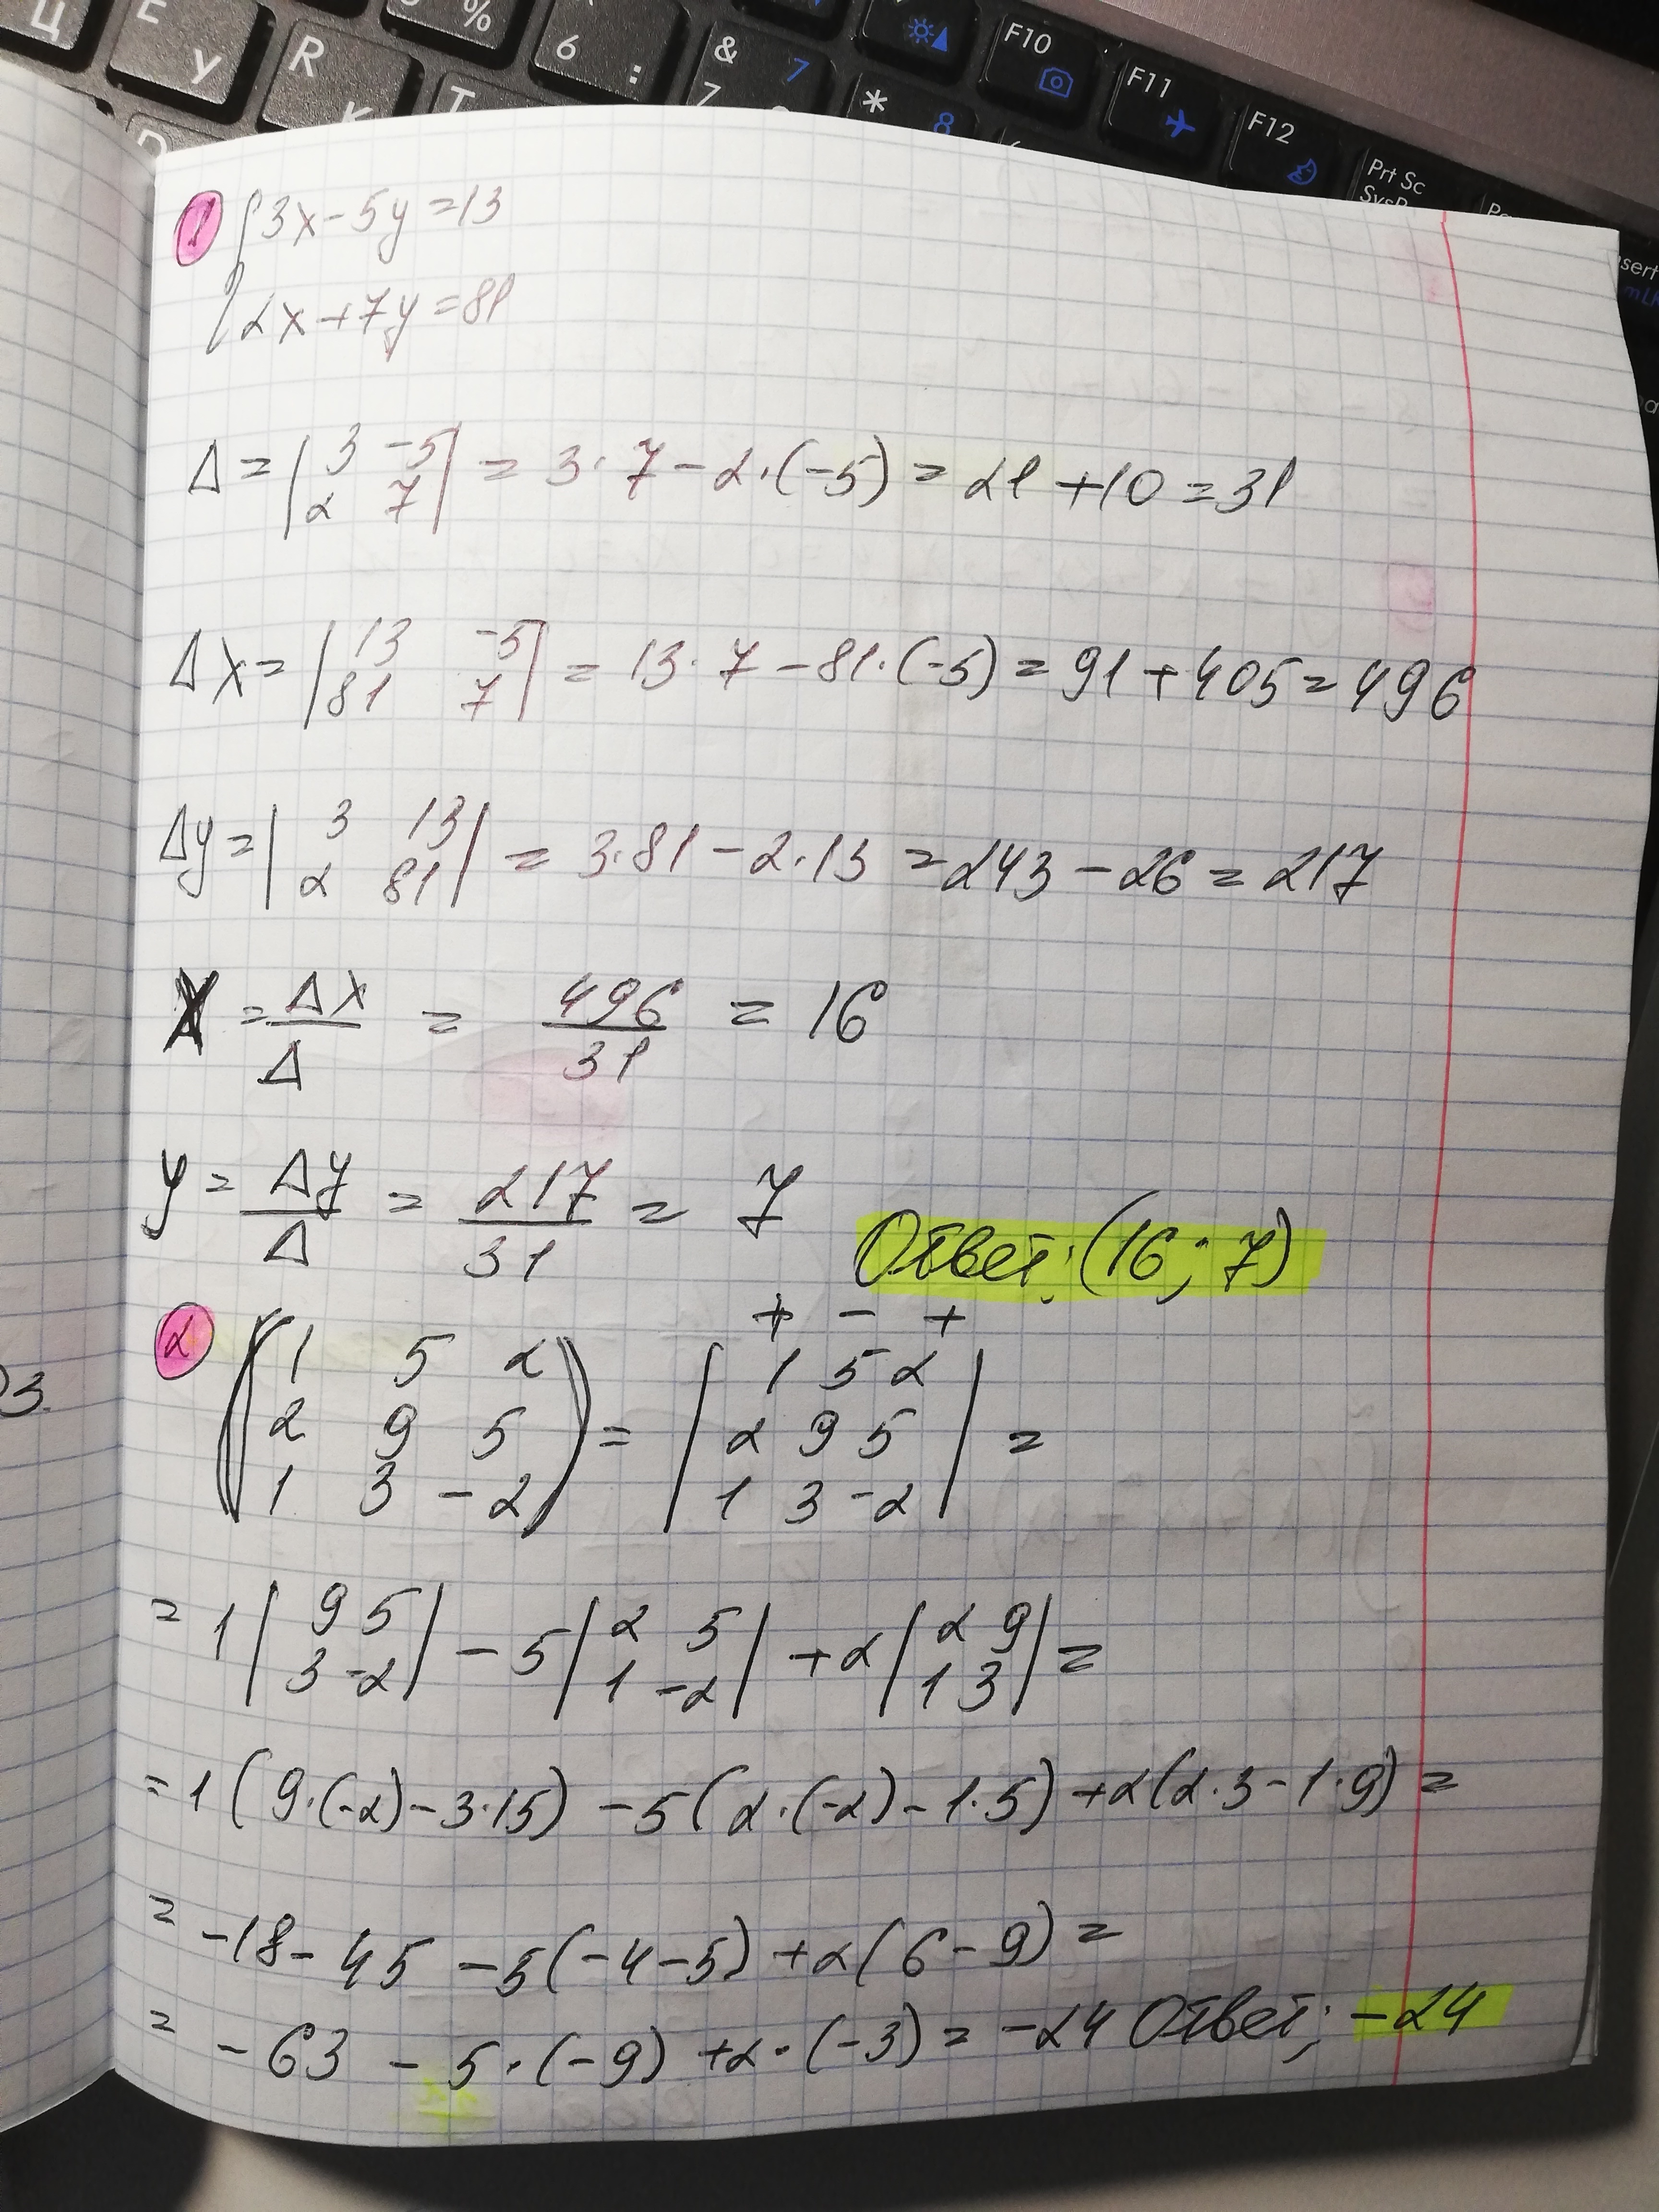 Ц E У R К % 6 : & 7 7 * 8 F10 F11 F12 Prt Sc
T
D
1 {3x-5y=13
2x+7y=81
Δ=|3 -5| = 3·7-2·(-5)=21+10=31
|2 7|
Δx=|13 -5| = 13·7-81·(-5)=91+405=496
|81 7|
Δy=|3 13| = 3·81-2·13=243-26=217
|2 81|
X = Δx/Δ = 496/31 = 16
y = Δy/Δ = 217/31 = 7 Ответ: (16; 7)
+ - +
2 (1 5 2) = |1 5 2| =
(2 9 5) |2 9 5|
(1 3 -2) |1 3 -2|
= 1|9 5| - 5|2 5| + 2|2 9| =
|3 -2| |1 -2| |1 3|
=1(9·(-2)-3·15) -5(2·(-2)-1·5)+2(2·3-1·9)=
= -18-45 -5(-4-5)+2(6-9)=
= -63 -5·(-9)+2·(-3)= -24 Ответ: -24
3.